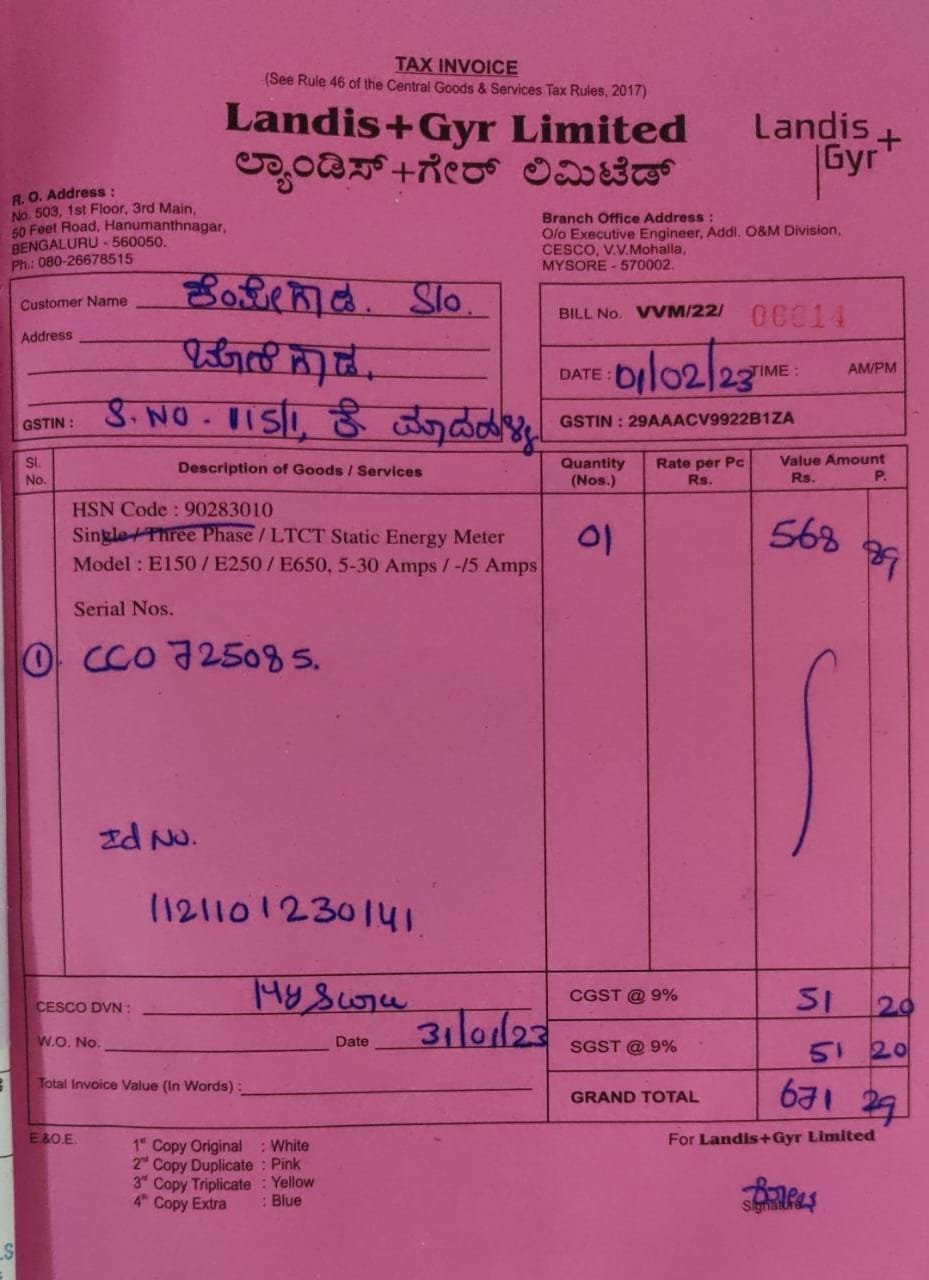 TAX INVOICE
(See Rule 46 of the Central Goods & Services Tax Rules, 2017)
Landis+Gyr Limited
ಲ್ಯಾಂಡಿಸ್+ಗೇರ್ ಲಿಮಿಟೆಡ್
Landis
Gyr+
R. O. Address :
No. 503, 1st Floor, 3rd Main,
50 Feet Road, Hanumanthnagar,
BENGALURU - 560050.
Ph.: 080-26678515
Branch Office Address :
O/o Executive Engineer, Addl. O&M Division,
CESCO, V.V.Mohalla,
MYSORE - 570002.
Customer Name ಕೆಂಪೇಗೌಡ. S/o.
Address
ಬೋರೇಗೌಡ.
GSTIN : S.NO. 115/1, ಕೆ ಮಾದಹಳ್ಳಿ
BILL No. VVM/22/ 06614
DATE : 01/02/23 TIME : AM/PM
GSTIN : 29AAACV9922B1ZA
Sl. No. Description of Goods / Services Quantity (Nos.) Rate per Pc Rs. Value Amount Rs. P.
HSN Code : 90283010
Single / Three Phase / LTCT Static Energy Meter 01 568 89
Model : E150 / E250 / E650, 5-30 Amps / -/5 Amps
Serial Nos.
① CCO 725085.
Id No.
1121101230141
CESCO DVN : CGST @ 9% 51 20
W.O. No. Date 31/01/23 SGST @ 9% 51 20
Total Invoice Value (In Words) : GRAND TOTAL 671 29
E.&O.E.
1st Copy Original : White
2nd Copy Duplicate : Pink
3rd Copy Triplicate : Yellow
4th Copy Extra : Blue
For Landis+Gyr Limited
Signature